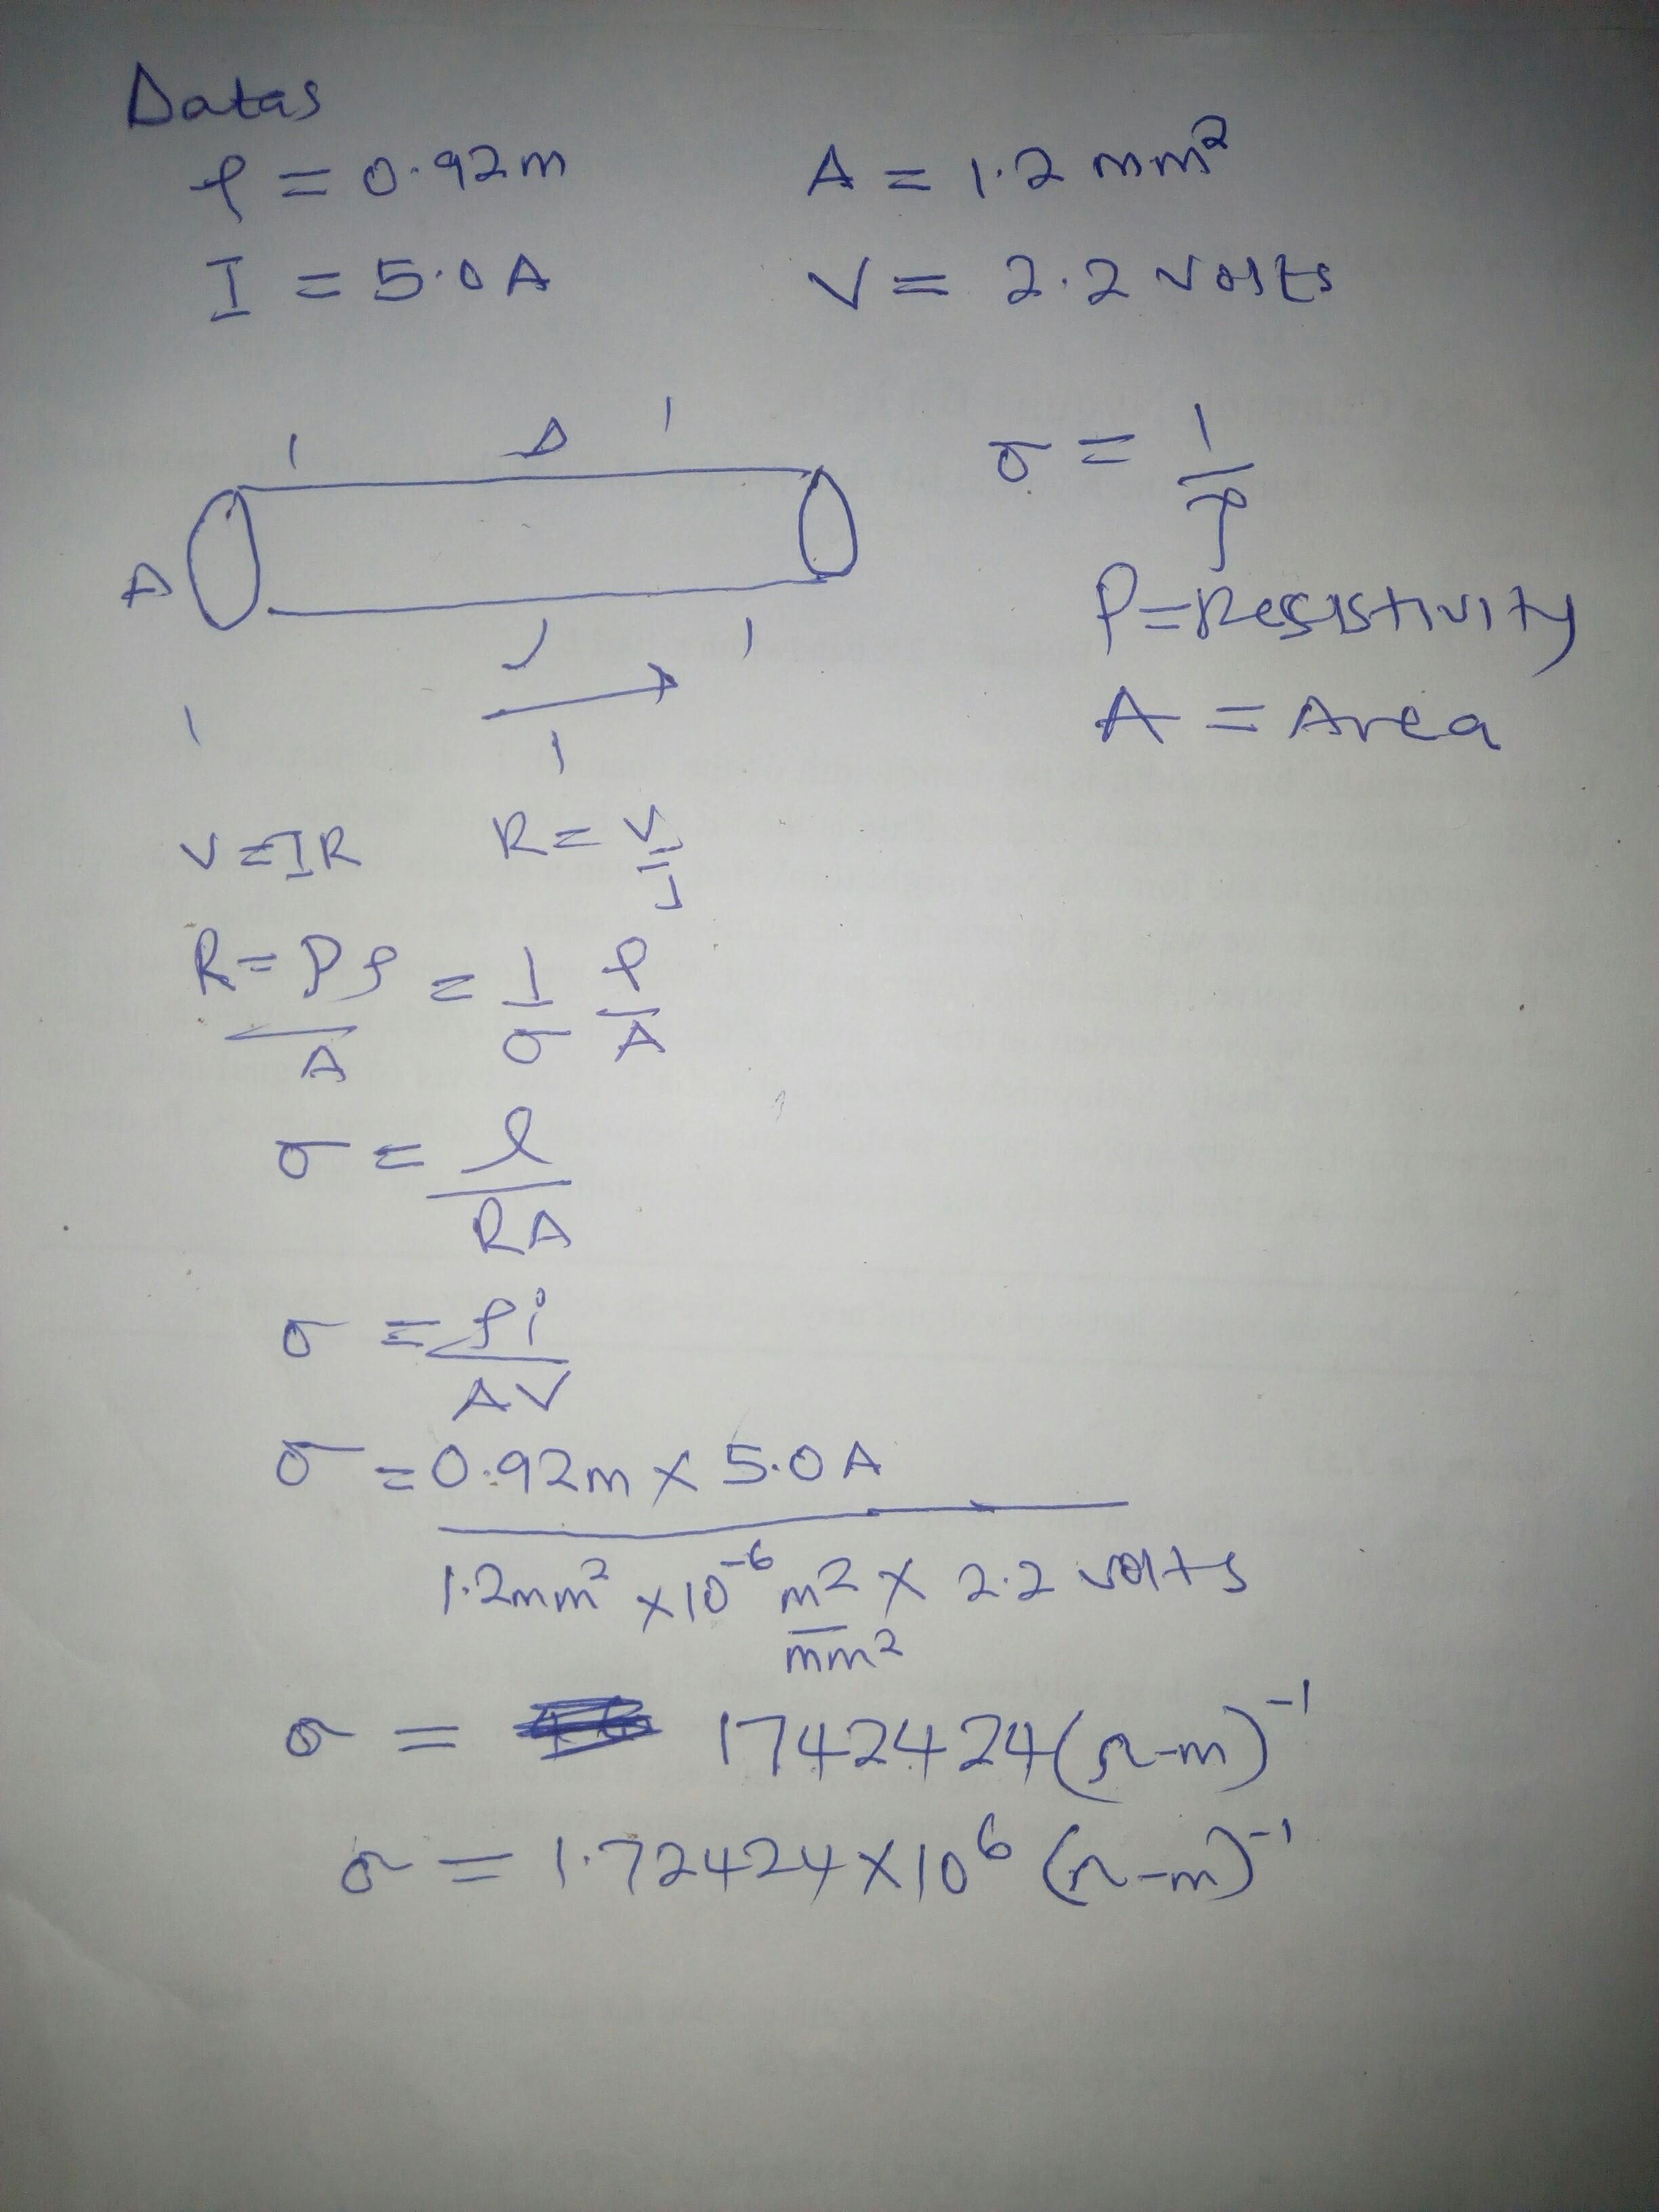 Datas
ℓ = 0.92m A = 1.2 mm²
I = 5.0A V = 2.2 volts
σ = 1/ρ
A
ρ = Resistivity
A = Area
V = IR R = V/I
R = ρℓ/A = 1/σ ℓ/A
σ = ℓ/RA
σ = ℓi/AV
σ = 0.92m × 5.0A
1.2mm² × 10⁻⁶ m²/mm² × 2.2 volts
σ = 1742424(Ω-m)⁻¹
σ = 1.72424 × 10⁶ (Ω-m)⁻¹